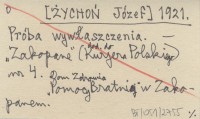 [ŻYCHOŃ Józef] 1921.
Próba wywłaszczenia. —
"Zakopane" (dod. do "Kurjera Polskiego")
nr 4. Dom Zdrowia
"Pomoc Bratnia" w Zako-
panem.